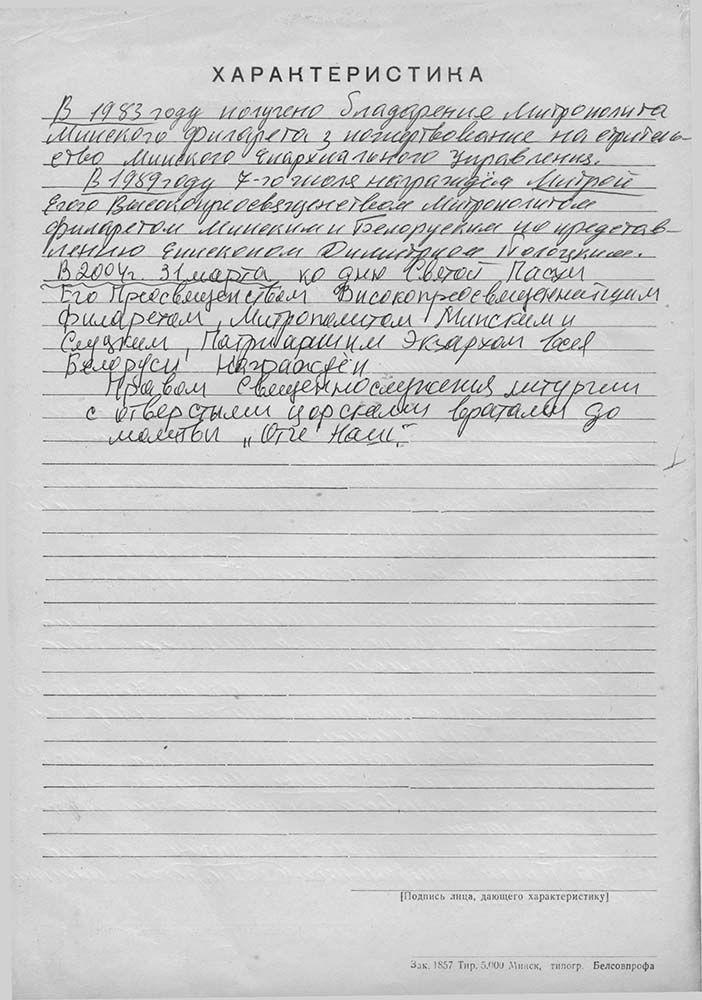 ХАРАКТЕРИСТИКА
В 1983 году получено благодарение Митрополита
Минского Филарета з пожертвование на строитель-
ство Минского Епархиального Управления.
В 1989 году 7-го июля награждём Митрой
Егого Высокопреосвященством Митрополитом
Филаретом Минским и Белоруским по представ-
лению Епископом Димитрием Полоцким.
В 2004 г. 31 марта ко дню Святой Пасхи
Его Преосвященством Високопреосвященнейшим
Филаретом, Митрополитом Минским и
Слуцким, Патриаршим Экзархом всея
Белоруси награждён
Правом Священнослужения литургии
с отверстыми царскими вратами до
молитвы „Отче Наш".
[Подпись лица, дающего характеристику]
Зак. 1857 Тир. 5.000 Минск, типогр. Белсовпрофа